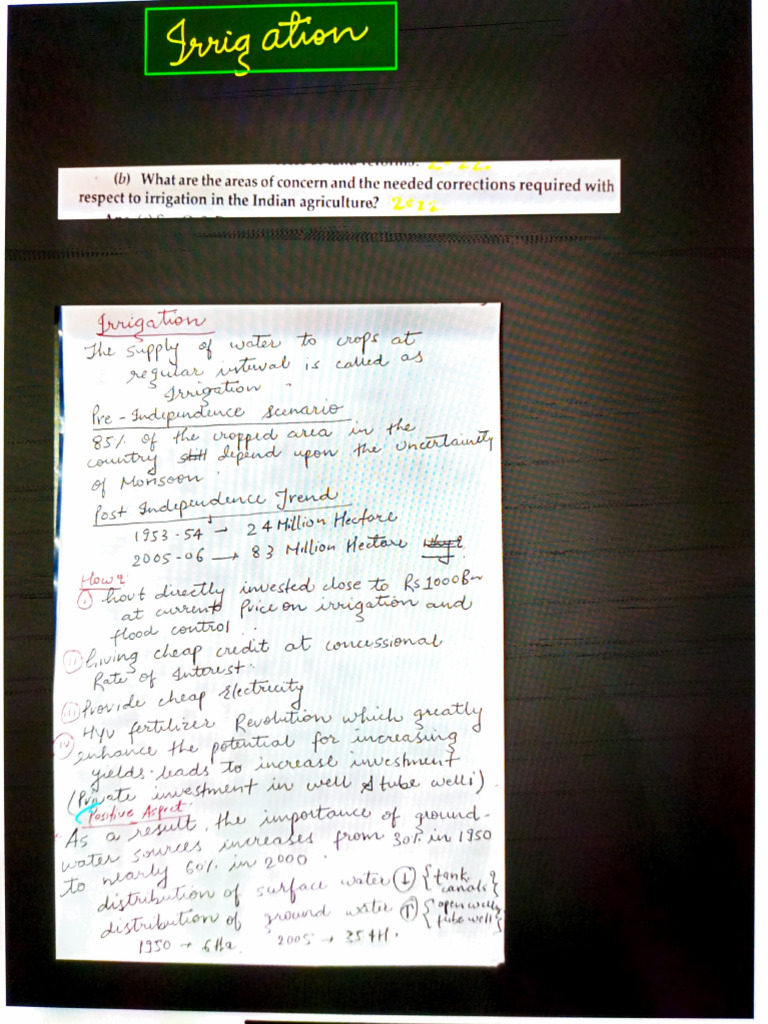 Irrigation
(b) What are the areas of concern and the needed corrections required with
respect to irrigation in the Indian agriculture? 2012
Irrigation
The supply of water to crops at
regular interval is called as
Irrigation
Pre - Independence Scenario
85% of the cropped area in the
country still depend upon the Uncertainity
of Monsoon
Post Independence Trend
1953-54 → 24 Million Hectare
2005-06 → 83 Million Hectare
How?
(i) Govt directly invested close to Rs 1000Bn
at current Price on irrigation and
flood control
(ii) Giving cheap credit at concessional
Rate of Interest.
(iii) Provide cheap Electricity
(iv) HYV fertilizer Revolution which greatly
enhance the potential for increasing
yields. leads to increase investment
(Private investment in well & tube wells)
Positive Aspect.
As a result, the importance of ground-
water sources increases from 30% in 1950
to nearly 60% in 2000.
distribution of surface water (↓) {tank canals}
distribution of ground water (↑) {open wells tube wells}
1950 → 6Ha 2005 → 35